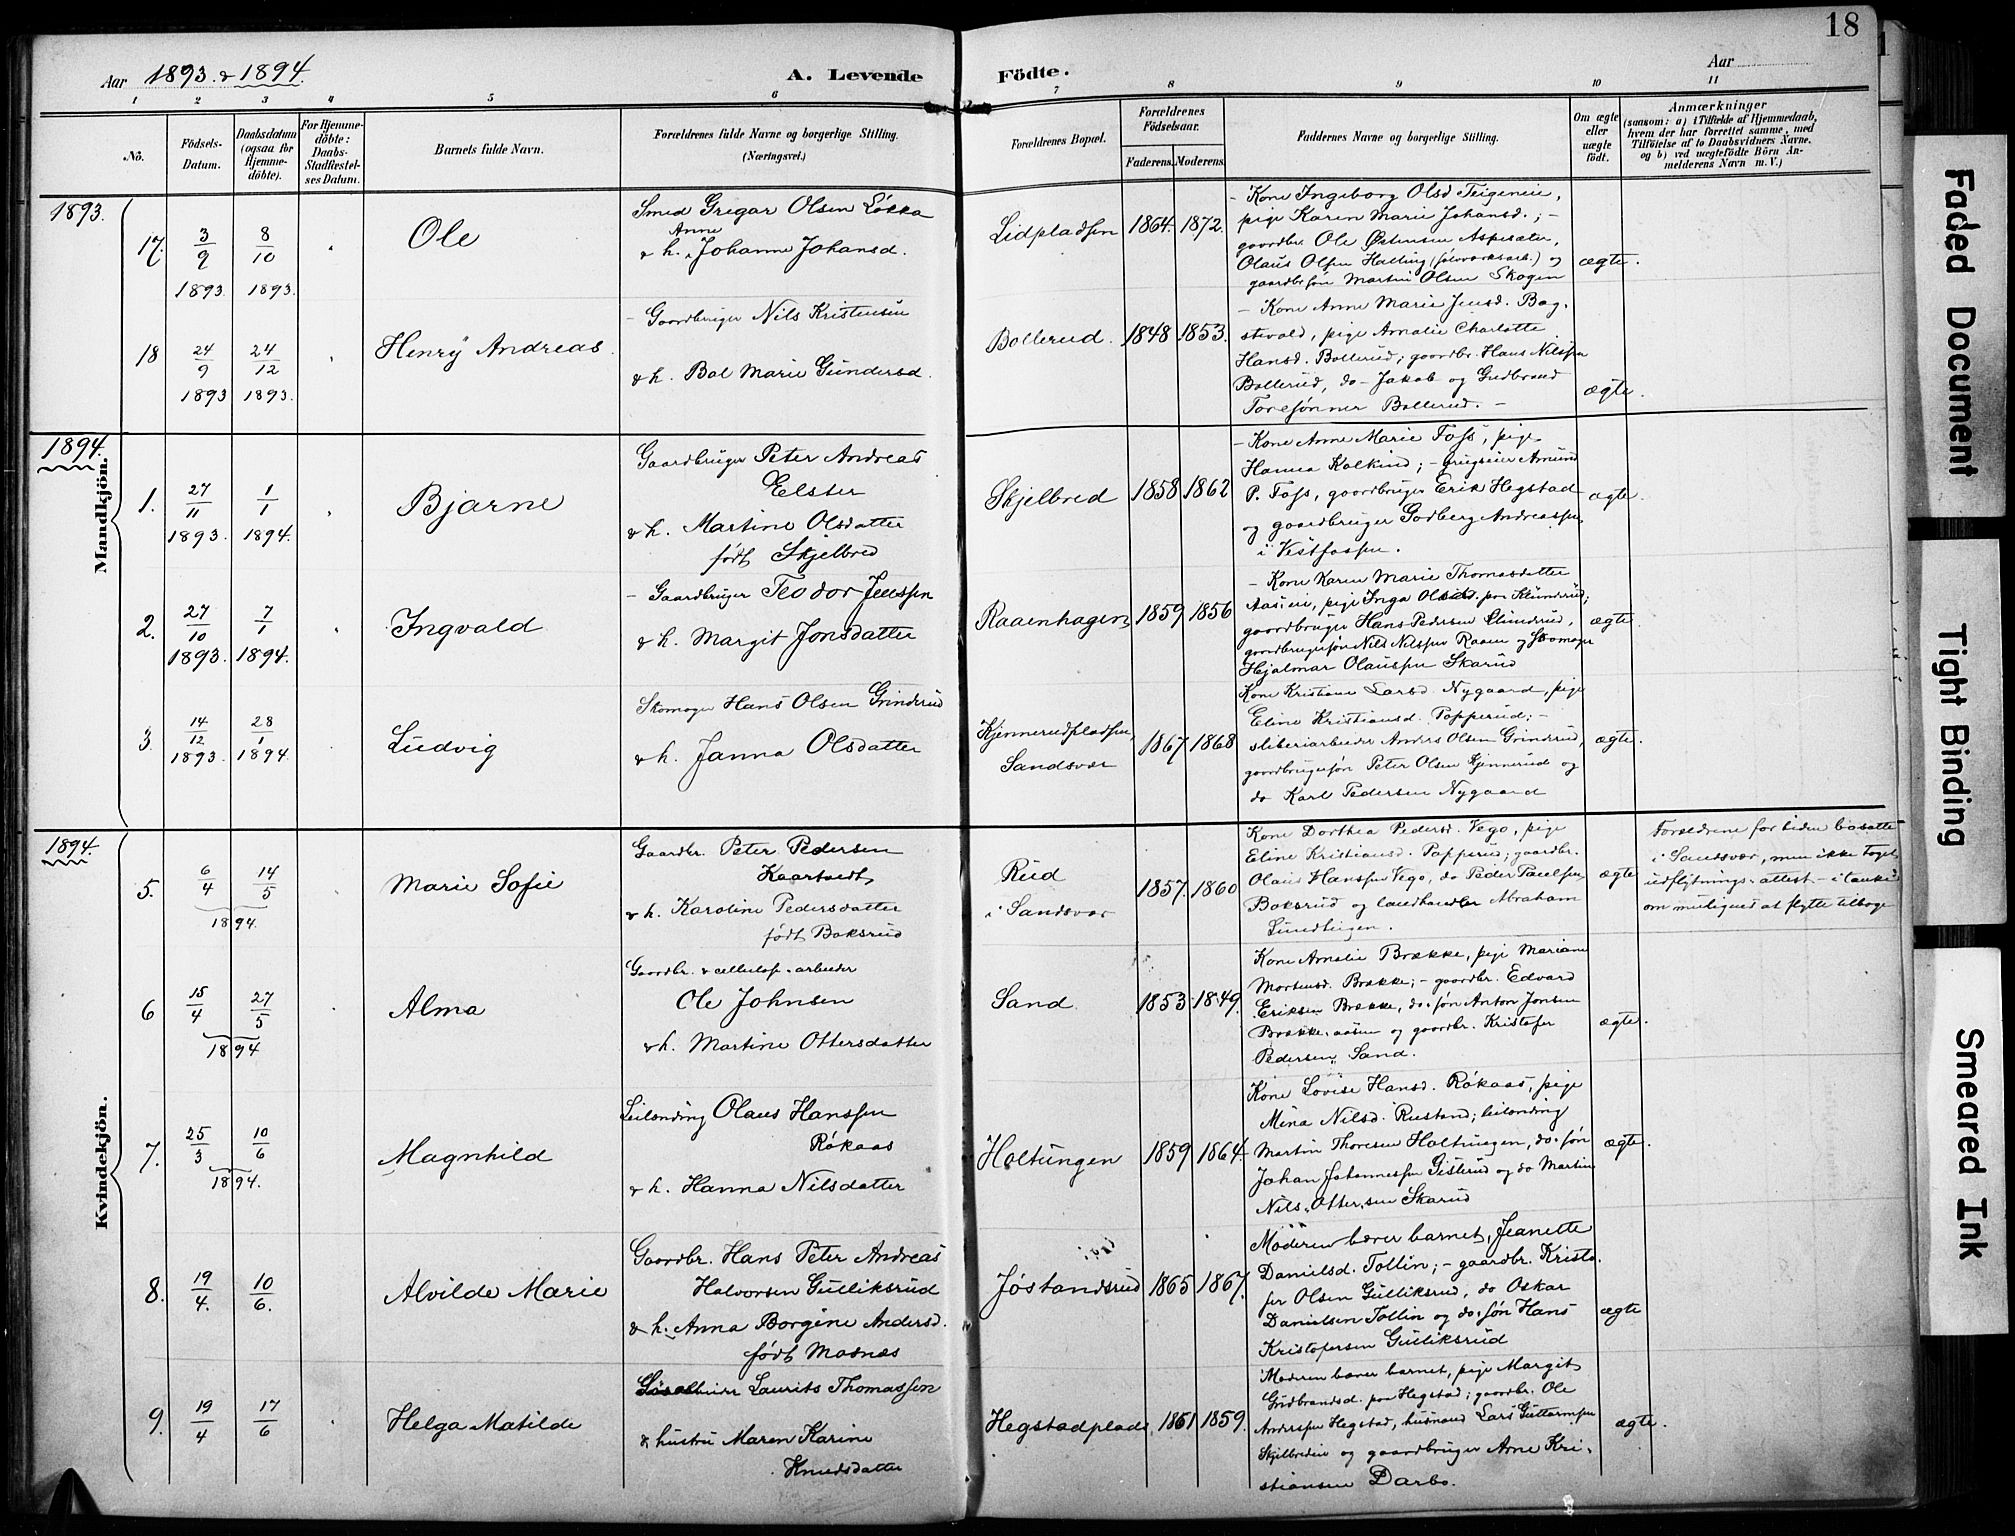 18
Aar 1893 & 1894.
A. Levende Födte.
Aar
1 2 3 4 5 6 7 8 9 10 11
No.
Födsels-Datum.
Daabsdatum (ogsaa for Hjemme-döbte).
For Hjemme-döbte: Daabs-Stadfæstel-ses Datum.
Barnets fulde Navn.
Forældrenes fulde Navne og borgerlige Stilling. (Næringsvei.)
Forældrenes Bopæl.
Forældrenes Födselsaar.
Faderens. Moderens.
Faddernes Navne og borgerlige Stilling.
Om ægte eller uægte födt.
Anmærkninger
(saasom: a) i Tilfælde af Hjemmedaab,
hvem der har forrettet samme, med
Tilföielse af to Daabsvidners Navne,
og b) ved uægtefödte Börn An-
melderens Navn m. V.)
1893.
17. 3/9 1893. 8/10 1893.
Ole
Smed Gregar Olsen Løkka
& h. Anne Johanne Johansd.
Lidpladsen 1864. 1872.
- Kone Ingeborg Olsd Teigeneie,
pige Karen Marie Johansd.; -
gaardbr. Ole Østensen Aspesæter,
Olaus Olsen Halling (sølvverksarb.) og
gaardbr. søn Martin Olsen Skogen
ægte.
18 24/9 1893 24/12 1893.
Henry Andreas
- Gaardbruger Nils Kristensen
& h. Bol Marie Gundersd.
Bollerud. 1848 1853.
- Kone Anne Marie Jensd. Bag-
stevald, pige Amalie Charlotte
Hansd. Bollerud; gaardbr. Hans Nilssen
Bollerud, do - Jakob og Gudbrand
Toresønner Bollerud. -
ægte.
1894.
Mandkjön.
1. 27/11 1893. 1/1 1894.
Bjarne
Gaardbruger Peter Andreas
Elster
& h. Martine Olsdatter
født Skjelbred
Skjelbred 1858 1862
- Kone Anne Marie Foss, pige
Hanna Kolkind; - Amund
P. Foss, gaardbruger Erik Hegstad
og gaardbruger Godberg Andreassen
i Vestfossen.
ægte.
2. 27/10 1893. 7/1 1894.
Ingvald
- Gaardbruger Teodor Jenssen
& h. Margit Jonsdatter
Raaenhagen 1859 1856
- Kone Karen Marie Thomasdatter
Aaseie, pige Inga Olsd. paa Klunderud;
gaardbruger Hans Pedersen Slunderud,
gaardbrugersøn Nils Nilssen Raaen og Skomager
Hjalmar Olaussen Skarud
ægte.
3. 14/12 1893. 28/1 1894.
Ludvig
Skomager Hans Olsen Grinderud
& h. Janna Olsdatter
Kjennerudpladsen, Sandsvær
1867. 1868
Kone Kristiane Larsd. Nygaard, pige
Eline Kristiansd. Popperud; -
sliberiarbeider Anders Olsen Grinderud,
gaardbrugersøn Peter Olsen Kjennerud og
do Karl Pedersen Nygaard
ægte.
1894.
Kvindekjön.
5. 6/4 14/5 1894.
Marie Sofie
Gaardbr. Peter Pedersen
Kaartvedt
& h. Karoline Pedersdatter
født Boksrud
Rud
i Sandsvær
1857. 1860
Kone Dorthea Pedersd. Vego, pige
Eline Kristiansd. Popperud; gaardbr.
Olaus Hanssen Vego, do Peder Paulsen
Boksrud og landhandler Abraham
Lundteigen.
ægte
Forældrene for tiden bosatte
i Sandsvær, men ikke taget
udflytnings-attest - i tanke
om muligens at flytte tilbage
6 15/4 27/5 1894
Alma
Gaardbr. & cellulose-arbeider
Ole Johnsen
& h. Martine Ottersdatter
Sand 1853 1849.
Kone Amalie Brække, pige Mariane
Mortensd. Brække; - gaardbr. Edvard
Eriksen Brække, do. søn Anton Jonsen
Brække-aasen og gaardbr. Kristofer
Pedersen Sand.
ægte.
7. 25/3 10/6 1894.
Magnhild
Leilænding Olaus Hanssen
Røkaas
& h. Hanna Nilsdatter
Holtungen 1859 1864
Kone Lovise Hansd. Røkaas, pige
Mina Nilsd. Rustand; leilænding
Martin Thoresen Holtungen, do. søn
Johan Johannessen Gisterud og do Martin
Nils. Ottersen Skarud
ægte.
8. 19/4. 10/6.
Alvilde Marie
Gaardbr. Hans Peter Andreas
Halvorsen Gulliksrud
& h. Anna Borgine Andersd.
født Mosnæs
Jøstandsrud 1865 1867.
Moderen bærer barnet, Jeanette
Danielsd. Tollin; - gaardbr. Kristo-
fer Olsen Gulliksrud, do Oskar
Danielsen Tollin og do. søn Hans
Kristofersen Gulliksrud
ægte
9. 19/4 17/6
Helga Matilde
Laurits Thomassen
& hustru Maren Karine
Knudsdatter
Hegstadplads, 1861 1859.
Moderen bærer barnet, pige Margit
Gudbrandsd. paa Hegstad; gaardbr. Ole
Anderssen Hegstad, husmand Lars Guttormsen
Skjelbredeie og gaardbruger Arne Kri-
stiansen Darbo.
ægte.
Faded Document
Tight Binding
Smeared Ink